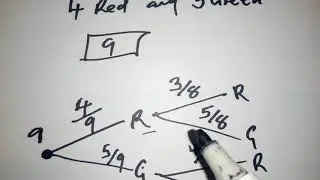 4 Red and 5 Green
9
3/8 R
4/9 R
5/8 G
9
5/9 G
R